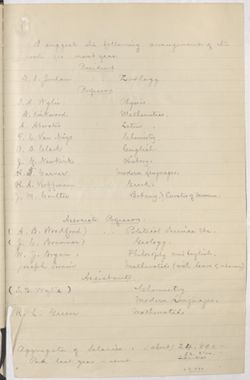 I suggest the following arrangement of the
work for next year.
President
D. S. Jordan Zoology
Professors
T. A. Wylie Physics
D. Kirkwood Mathematics.
A. Atwater Latin
T. C. Van Nuys Chemistry
O. B. Clark English.
J. G. Newkirk History.
H. B. modern languages.
H. A. Hoffman Greek.
J. M. Coulter Botany & Curator of Museum
Associate Professors.
(A. B. Woodford) Political Science etc.
(J. C. Branner) Geology.
W. J. Bryan Philosophy and English.
Joseph Swain Mathematics (with leave of absence)
Assistants
(T. B. Wylie) Chemistry
Modern Languages.
R. L. Green Mathematics
Aggregate of Salaries, about
Paid last year, about